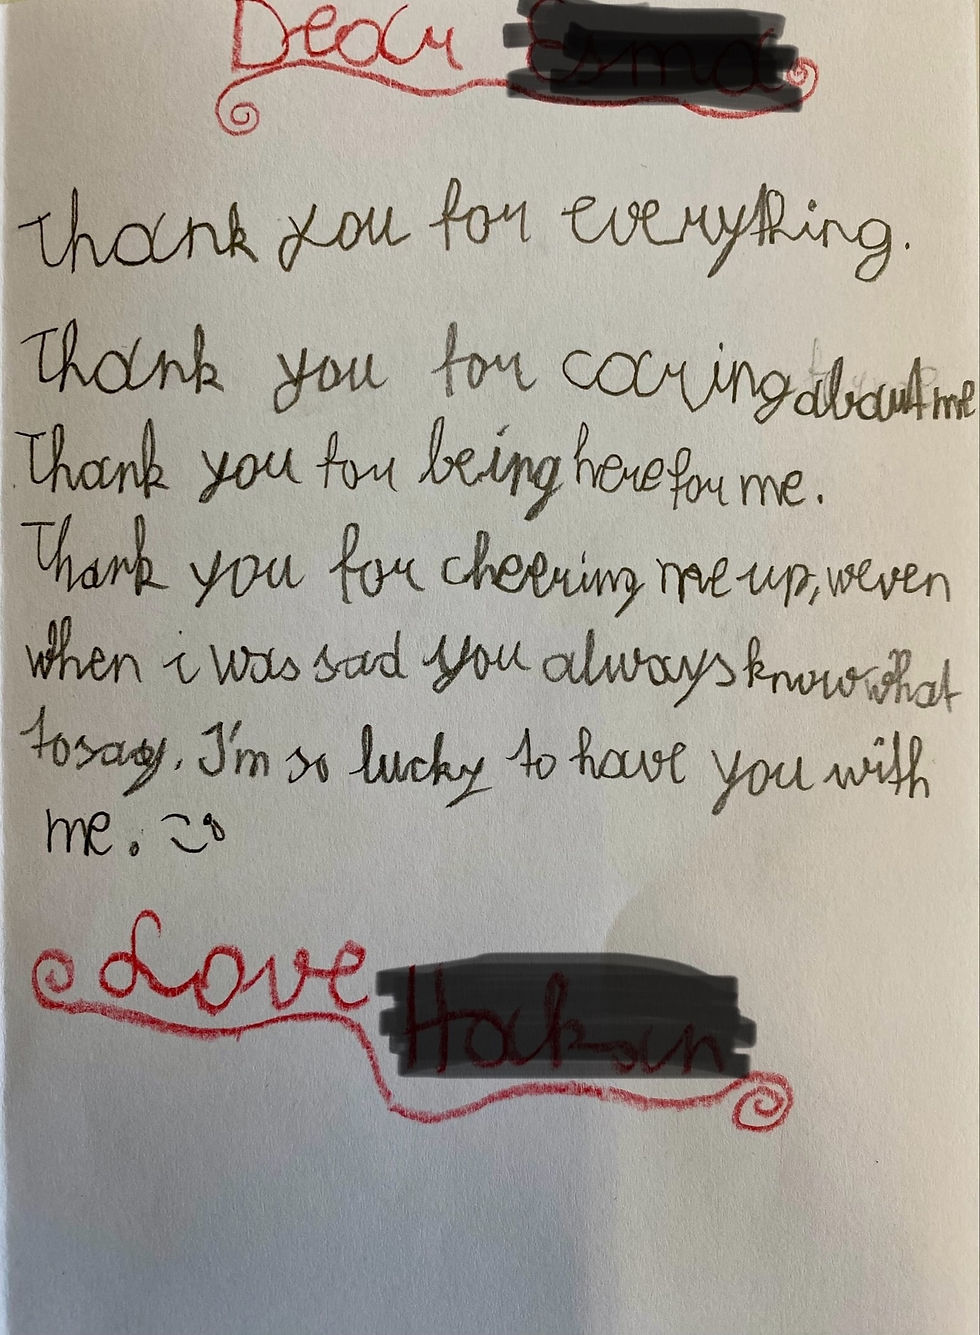 Dear
Thank you for everything.
Thank you for caring about me
Thank you for being here for me.
Thank you for cheering me up, weven
when i was sad you always know what
to say. I'm so lucky to have you with
me.
Love